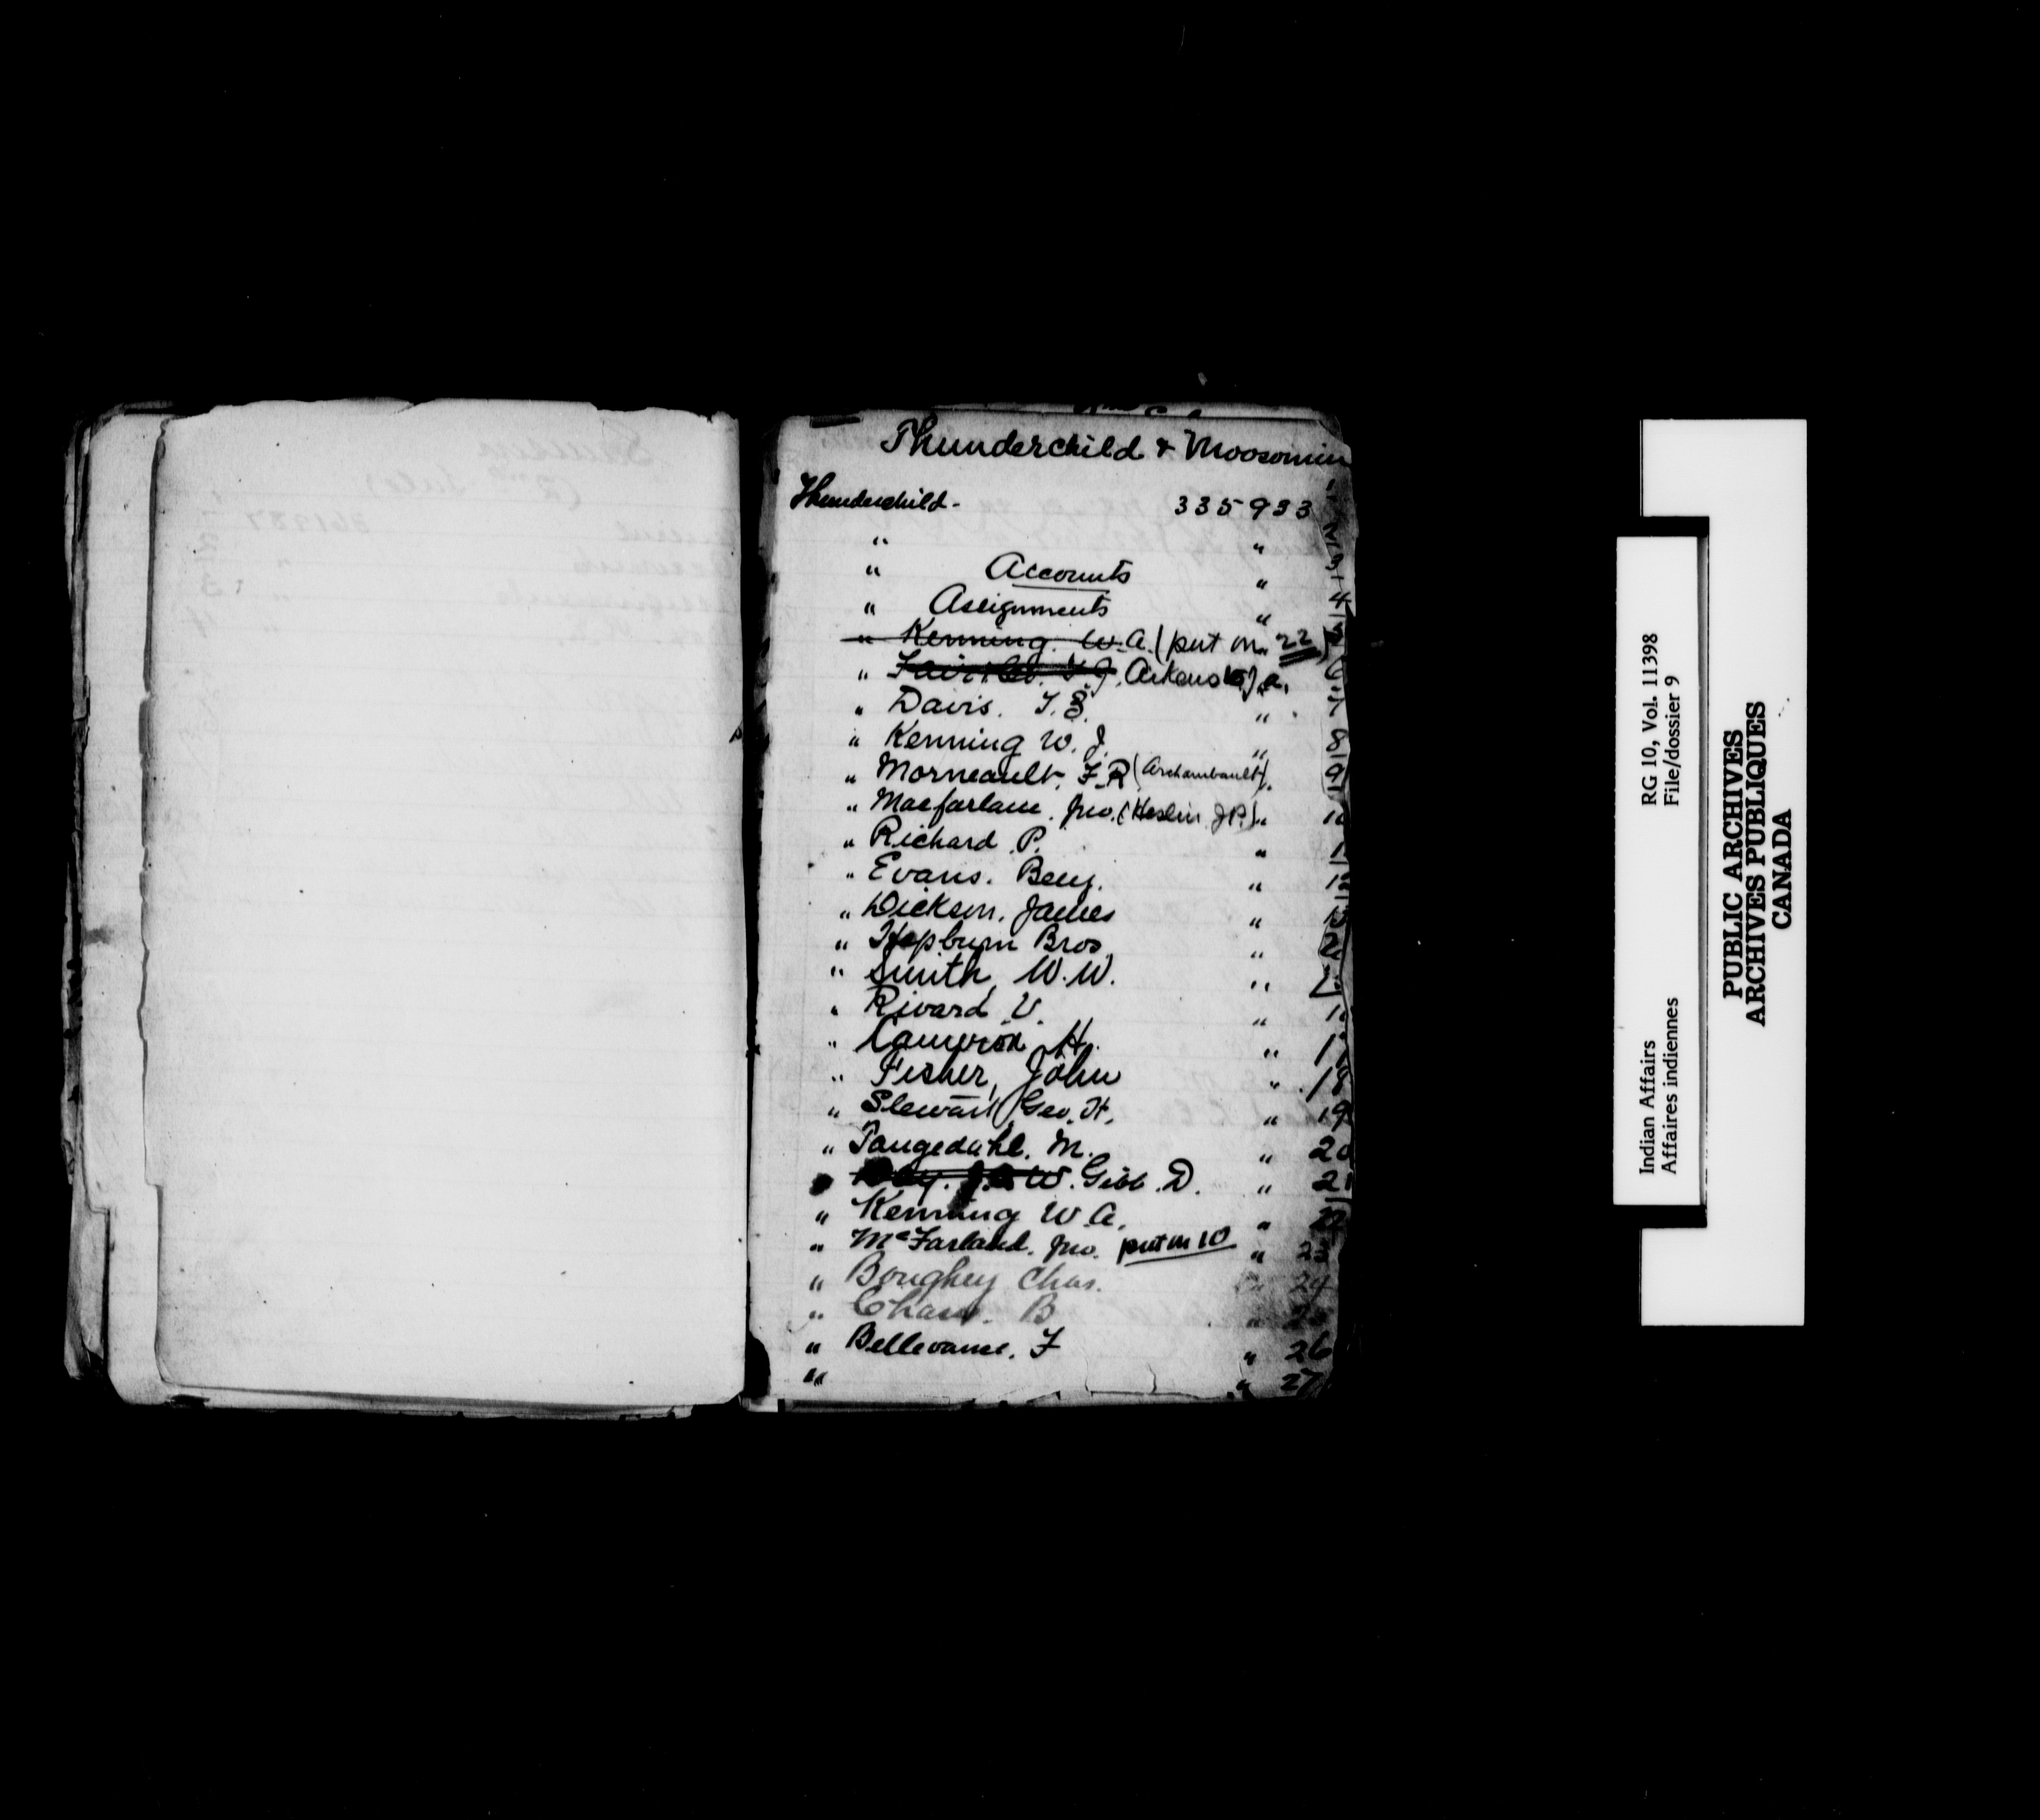 Thunderchild & Moosomin
Thunderchild - 335933 1
" " 2
" Accounts " 3
" Assignments " 4
" Kenning. W. A. (put in 22) 5
" J. a. 6
" Davis. T. S. " 7
" Kenning W. J. " 8
" Morneault, F. R (Archambault) " 9
" Macfarlane. Jno. (Heslin J P.) " 10
" Richard. P. " 1
" Evans. Benj. " 12
" Dickson. James "
" Hepburn Bros. "
" Smith, W. W. "
" Rivard V. " 1
" Cameron H. " 17
" Fisher, John " 18
" Stewart Geo. H. " 19
" Tangedahl. M. " 20
W. Gibb. D. " 21
" Kenning W. A. " 22
" McFarland. Jno. put in 10 " 23
" Boughey Chas. " 24
" B "
" Bellevance. F " 26
" " 27
Indian Affairs RG 10, Vol. 11398
Affaires indiennes File/dossier 9
PUBLIC ARCHIVES
ARCHIVES PUBLIQUES
CANADA